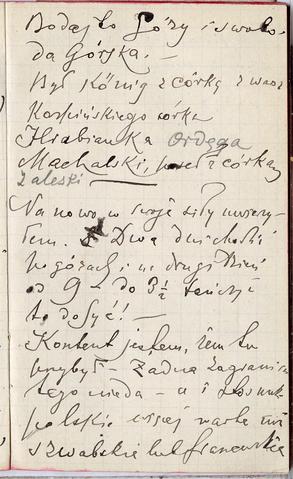 Bodaj to Góry i swobo-
da Górska. —
Był König z córką z
Kosińskiego córka
Hrabianka Ordęga
Machalski, poseł z córką
Zaleski
Na nowo w swoje siły uwierzy-
łem. Dwa dni chodzić
po górach i na drugi dzień
od 9 – do 3½ tańczyć
to dosyć! —
Kontent jestem, żem tu
przybył – Żadna Zagranica
tego nieda – a i stosunki
polskie więcej warte niż
szwabskie lub francuskie